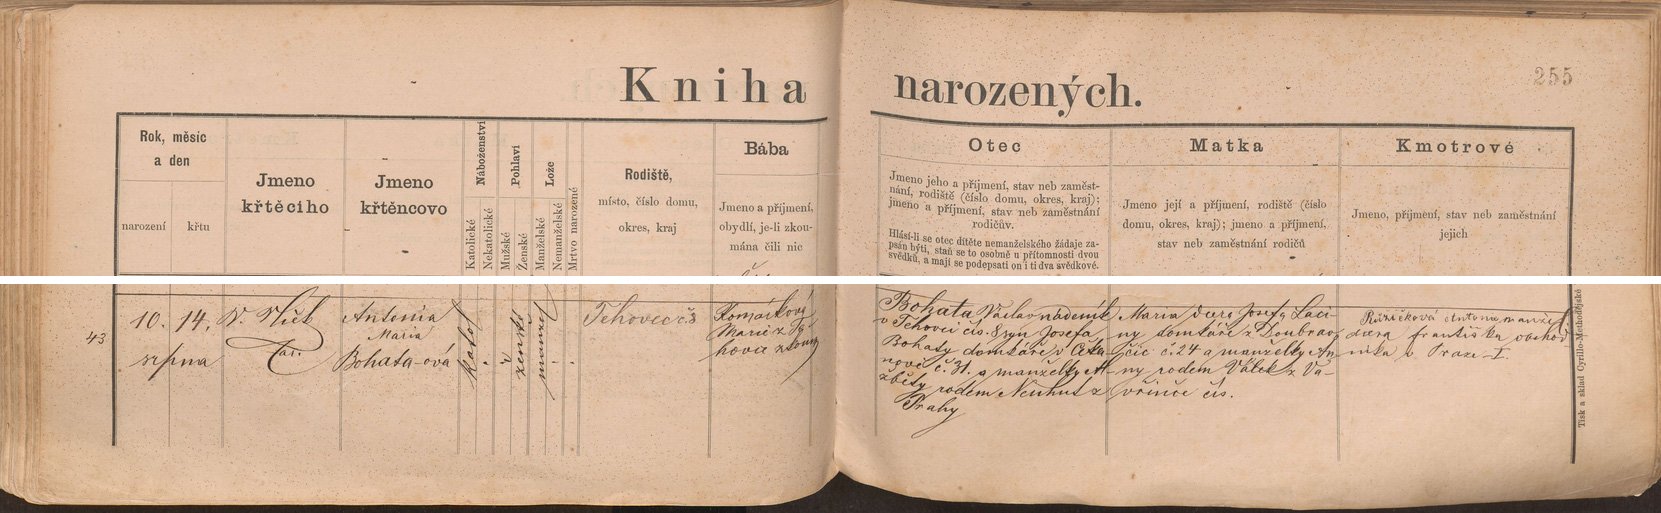 Kniha narozených.
255
Rok, měsíc
a den
narození
křtu
Jmeno
křtěcího
Jmeno
křtěncovo
Náboženství
Katolické
Nekatolické
Pohlaví
Mužské
Ženské
Lože
Manželské
Nemanželské
Mrtvo narozené
Rodiště,
místo, číslo domu,
okres, kraj
Bába
Jmeno a příjmení,
obydlí, je-li zkou-
mána čili nic
Otec
Jmeno jeho a příjmení, stav neb zaměst-
nání, rodiště (číslo domu, okres, kraj);
jmeno a příjmení, stav neb zaměstnání
rodičův.
Hlásí-li se otec dítěte nemanželského žádaje za-
psán býti, staň se to osobně u přítomnosti dvou
svědků, a mají se podepsati on i ti dva svědkové.
Matka
Jmeno její a příjmení, rodiště (číslo
domu, okres, kraj); jmeno a příjmení,
stav neb zaměstnání rodičů
Kmotrové
Jmeno, příjmení, stav neb zaměstnání
jejich
43
10. 14.
srpna
Antonia
Maria
Bohata-ová
katol
ženské
manžel
Tehovec č. 8
Komárková
Marie z
Bohata Václav nádeník
v Tehovci čís. 8 syn Josefa
Bohaty domkáře v
nově č. 31. a manželky Al-
žběty rodem Neuhut z
Prahy
Maria dcera Josefa Laci-
ny domkáře z Doubrav-
čic č. 24 a manželky An-
ny rodem Válek z Va-
Růžičková Antonie manžel
ka Františka obchod
níka v Praze-I.
Tisk a sklad Cyrillo-Methodějské